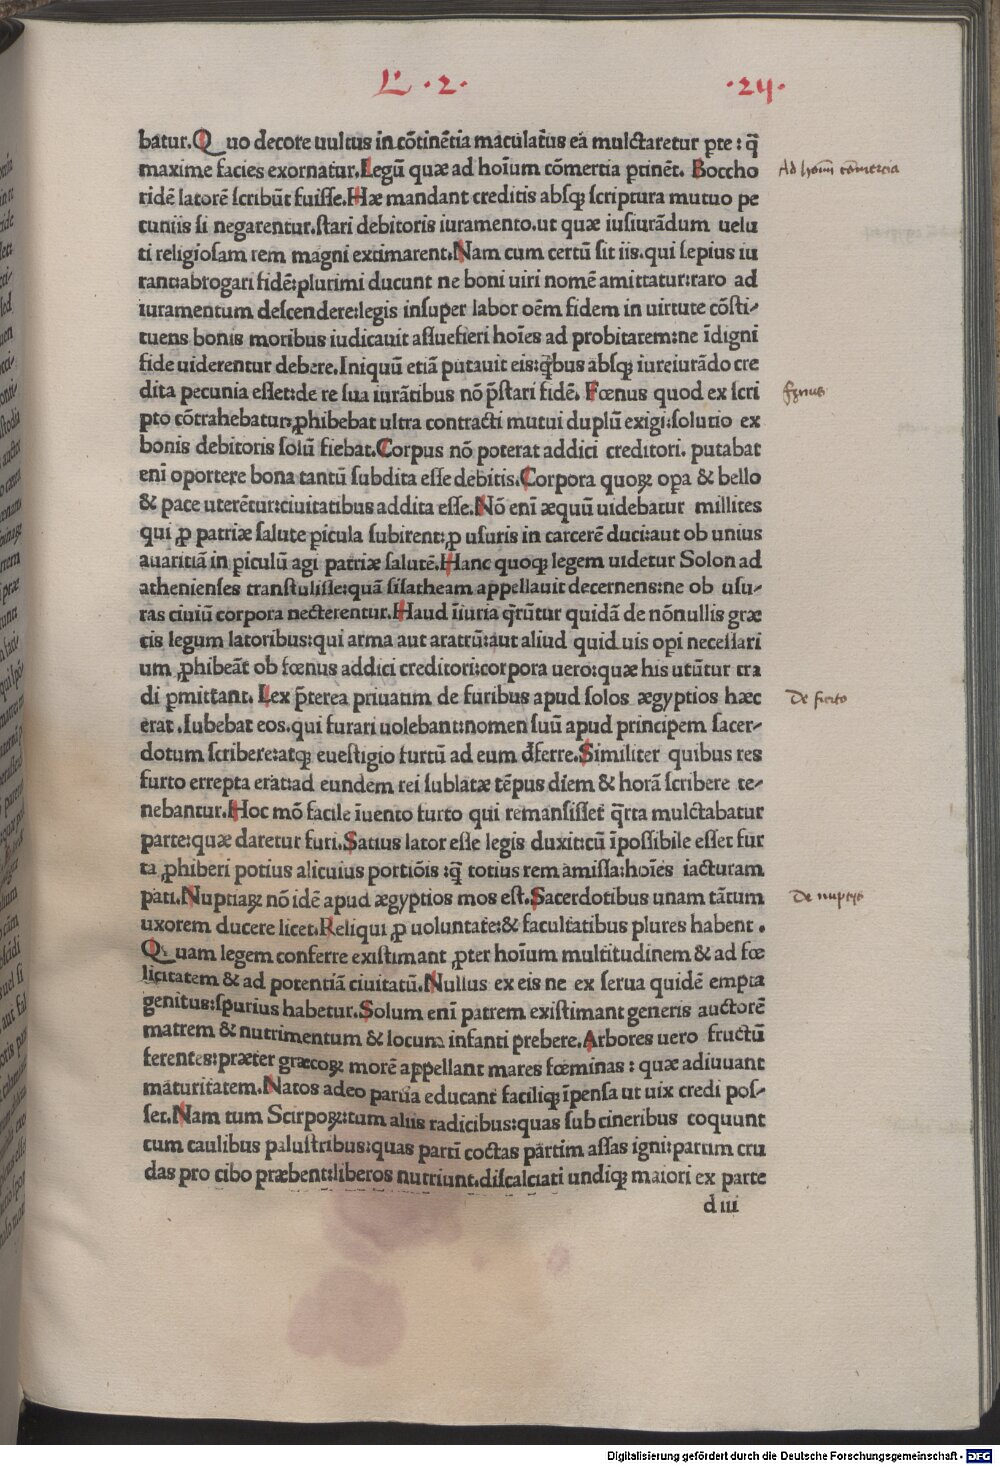 L. · 2 ·
· 24 ·
batur. Quo decore uultus in cōtinētia maculat̄us eā mulctaretur ꝑte : q̄
maxime facies exornatur. Legū quæ ad hoīum cōmertia ꝑtinēt. Boccho
Ad hoīm cōmercia
ridē latorē scribūt fuisse. Hæ mandant creditis absqꝫ scriptura mutuo pe
cuniis si negarentur. stari debitoris iuramento. ut quæ iusiurādum uelu
ti religiosam rem magni extimarent. Nam cum certū sit iis. qui sepius iu
rant: abrogari fidē: plurimi ducunt ne boni uiri nomē amittatur: raro ad
iuramentum descendere: legis insuper labor oēm fidem in uirtute cōsti-
tuens bonis moribus iudicauit assuefieri hoīes ad probitarem: ne īdigni
fide uiderentur debere. Iniquū etiā putauit eis: q̄bus absqꝫ iureiurādo cre
dita pecunia esset: de re sua iurātibus nō p̄stari fidē. Fœnus quod ex scri
fęnus
pto cōtrahebatur: ꝓhibebat ultra contracti mutui duplū exigi: solutio ex
bonis debitoris solū fiebat. Corpus nō poterat addici creditori. putabat
enī oportere bona tantū subdita esse debitis. Corpora quoqꝫ oꝑa & bello
& pace uterētur: ciuitatibus addita esse. Nō enī æquū uidebatur millites
qui ꝓ patriæ salute ꝑicula subirent: ꝓ usuris in carcerē duci: aut ob unius
auaritiā in ꝑiculū agi patriæ salutē. Hanc quoqꝫ legem uidetur Solon ad
athenienses transtulisse: quā sisatheam appellauit decernens: ne ob usu-
ras ciuiū corpora necterentur. Haud īiuria q̄rūtur quidā de nōnullis græ
cis legum latoribus: qui arma aut aratrū: aut aliud quid uis opi necessari
um ꝓhibeāt ob fœnus addici creditori: corpora uero: quæ his utūtur tra
di ꝑmittant. Lex p̄terea priuatim de furibus apud solos ægyptios hæc
De furto
erat. Iubebat eos. qui furari uolebant: nomen suū apud principem sacer-
dotum scribere: atqꝫ euestigio furtū ad eum d̄ferre. Similiter quibus res
furto errepta erat: ad eundem rei sublatæ tēpus diem & horā scribere te-
nebantur. Hoc mō facile īuento furto qui remansisset q̄rta mulctabatur
parte: quæ daretur furi. Satius lator esse legis duxit: cū īpossibile esset fur
ta ꝓhiberi potius alicuius portiōis : q̄ totius rem amissa: hoīes iacturam
pati. Nuptiaꝝ nō idē apud ægyptios mos est. Sacerdotibus unam tātum
De nuptijs
uxorem ducere licet. Reliqui ꝓ uoluntate: & facultatibus plures habent .
Quam legem conferre existimant ꝓpter hoīum multitudinem & ad fœ
licitatem & ad potentiā ciuitatū. Nullus ex eis ne ex serua quidē empta
genitus: spurius habetur. Solum enī patrem existimant generis auctorē
matrem & nutrimentum & locum infanti prebere. Arbores uero fructū
ferentes: præter græcoꝝ morē appellant mares fœminas : quæ adiuuant
maturitatem. Natos adeo parua educant faciliqꝫ īpensa ut uix credi pos-
set. Nam tum Scirpoꝝ: tum aliis radicibus: quas sub cineribus coquunt
cum caulibus palustribus: quas partī coctas partim assas igni: partim cru
das pro cibo præbent: liberos nutriunt. discalciati undiqꝫ maiori ex parte
d iii
Digitalisierung gefördert durch die Deutsche Forschungsgemeinschaft - DFG